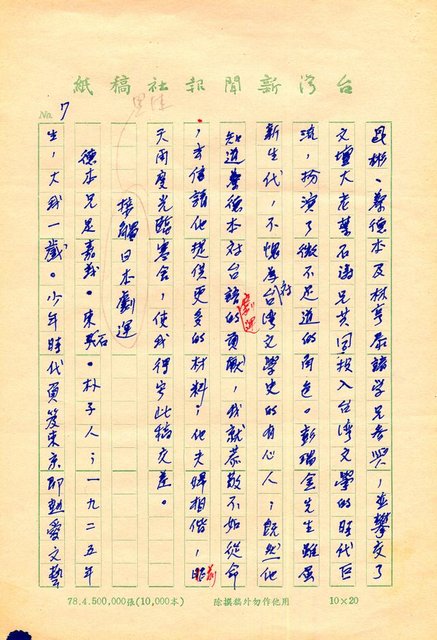 台灣新聞報社稿紙
No. 7
昆彬、蔡德本及林亨泰諸學兄吾輩,並攀交了
文壇大老葉石濤兄共同投入台灣文學的時代巨
流,扮演了微不足道的角色。彭瑞金先生雖虽
新生代,不愧為台灣文學史的有心人;既然他
知道蔡德本對台語劇運的貢獻,我就恭敬不如從命
,去信請他提供更多的材料;他夫婦相偕,前
天兩度光臨寒舍,使我得以此稿交差。
接觸日本劇運
德本兄是嘉義。東石朴子人;一九二五年
生,大我一歲。少年時代負笈東京即熱愛文藝
78.4.500,000張(10,000本)
除撰稿外勿作他用
10×20